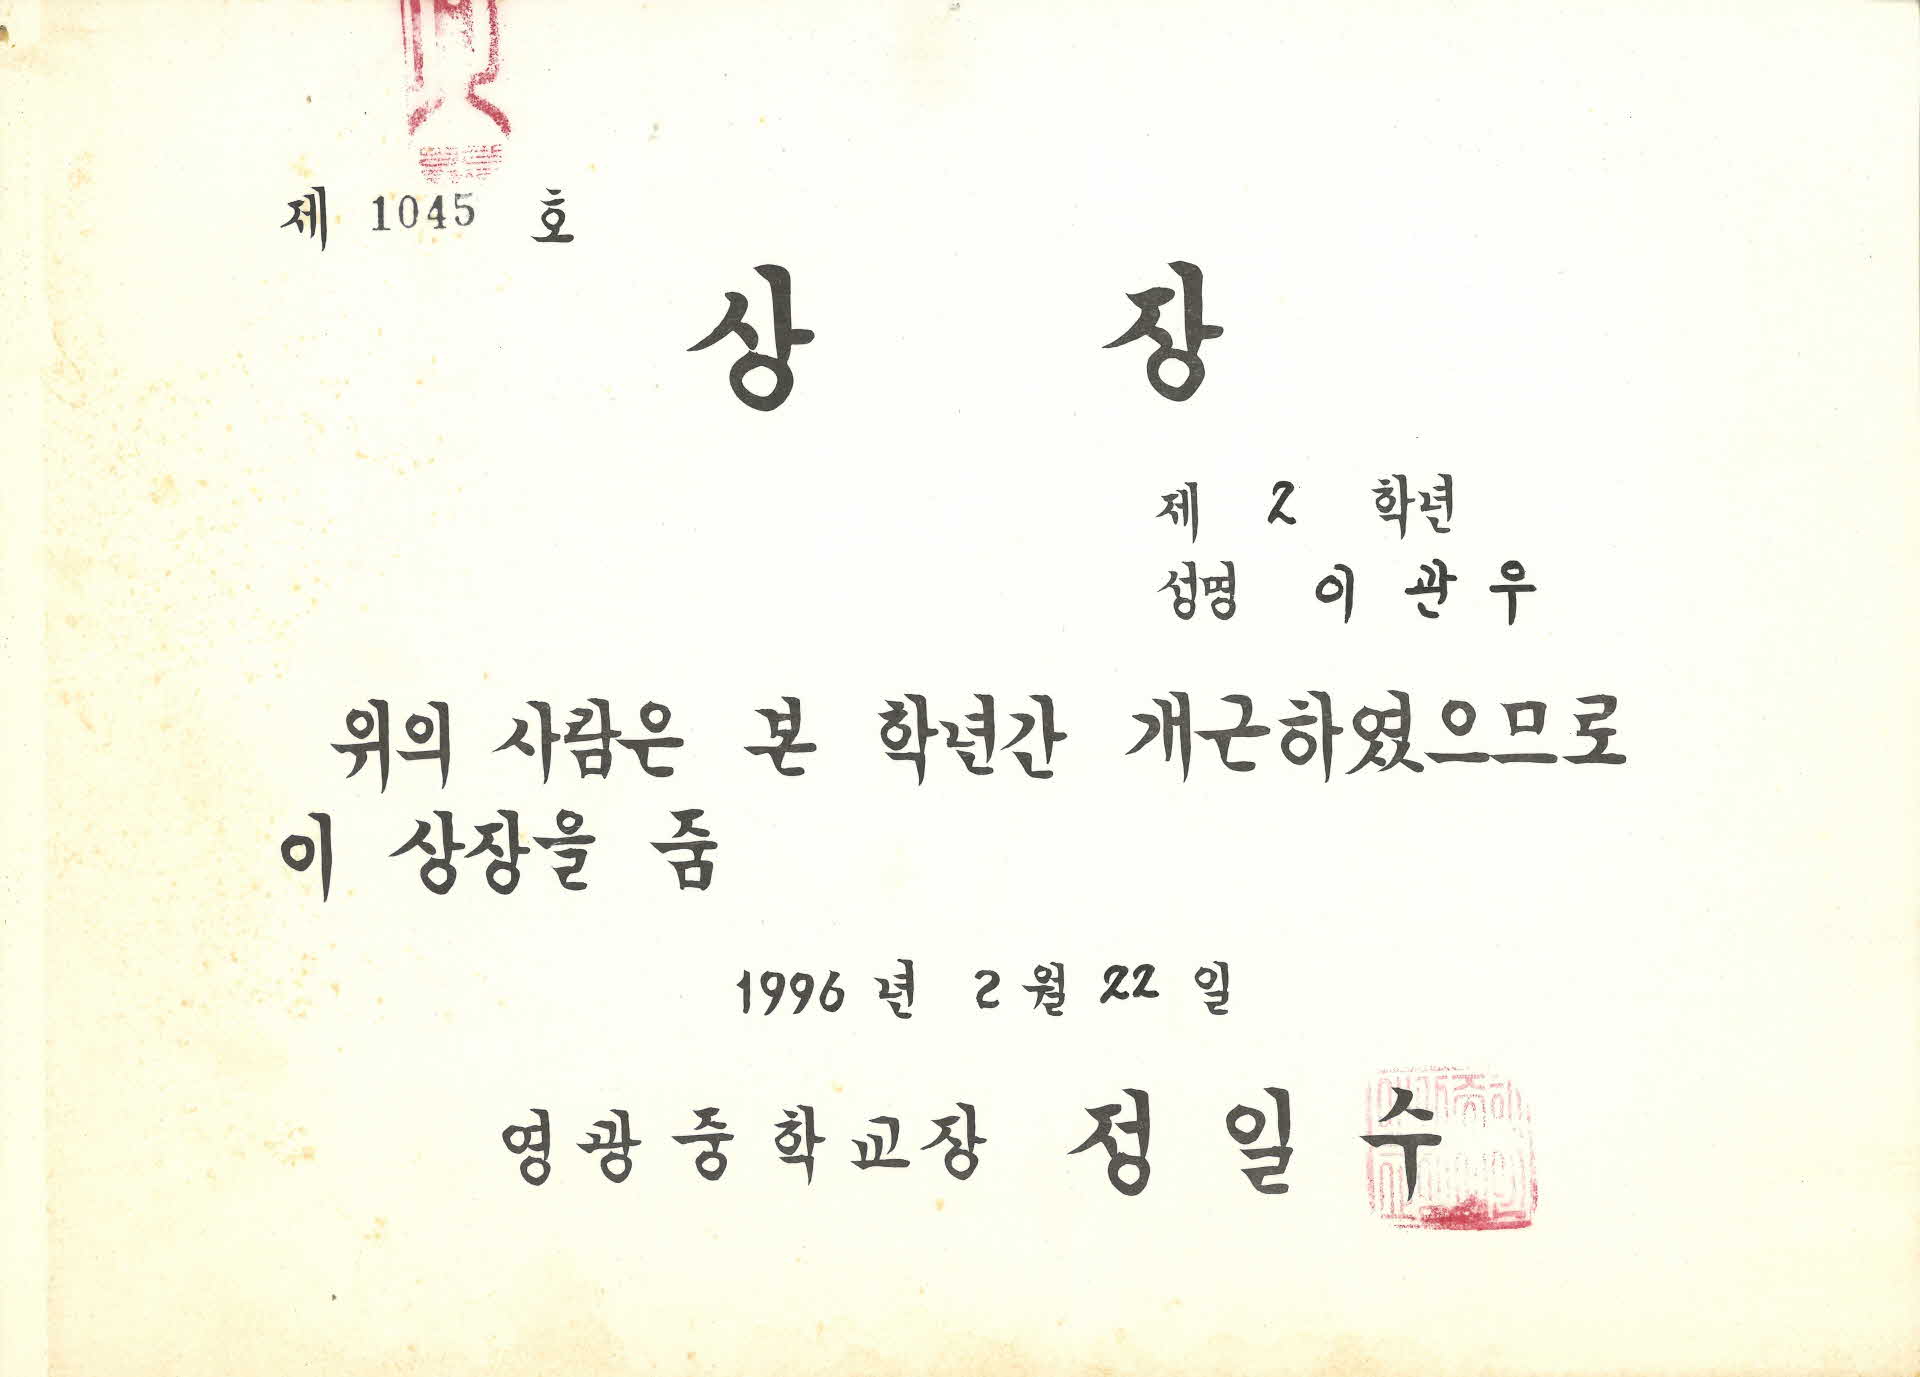 제 1045 호
상 장
제 2 학년
성명 이 관 우
위의 사람은 본 학년간 개근하였으므로
이 상장을 줌
1996 년 2 월 22 일
영광중학교장 정 일 수